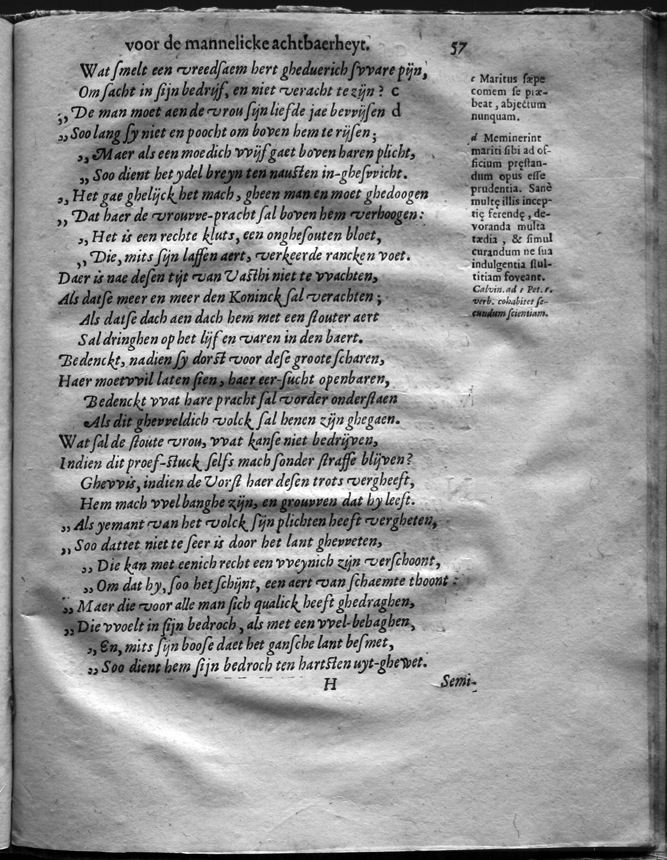 voor de mannelicke achtbaerheyt. 57
Wat smelt een vreedsaem hert gheduerich svvare pijn,
Om sacht in sijn bedrijf, en niet veracht te zijn? c
,, De man moet aen de vrou sijn liefde jae bevvijsen d
,, Soo lang sy niet en poocht om boven hem te rijsen;
,, Maer als een moedich vvijf gaet boven haren plicht,
,, Soo dient het ydel breyn ten nausten in-ghesvvicht.
,, Het gae ghelijck het mach, gheen man en moet ghedoogen
,, Dat haer de vrouvve-pracht sal boven hem verhoogen:
,, Het is een rechte kluts, een onghesouten bloet,
,, Die, mits sijn laffen aert, verkeerde rancken voet.
Daer is nae desen tijt van Vasthi niet te vvachten,
Als datse meer en meer den Koninck sal verachten;
Als datse dach aen dach hem met een stouter aert
Sal dringhen op het lijf en varen in den baert.
Bedenckt, nadien sy dorst voor dese groote scharen,
Haer moetvvil laten sien, haer eer-sucht openbaren,
Bedenckt vvat hare pracht sal vorder onderstaen
Als dit ghevveldich volck sal henen zijn ghegaen.
Wat sal de stoute vrou, vvat kanse niet bedrijven,
Indien dit proef-stuck selfs mach sonder straffe blijven?
Ghevvis, indien de Vorst haer desen trots vergheeft,
Hem mach vvel banghe zijn, en grouvven dat hy leeft.
,, Als yemant van het volck sijn plichten heeft vergheten,
,, Soo dattet niet te seer is door het lant ghevveten,
,, Die kan met eenich recht een vveynich zijn verschoont,
,, Om dat hy, soo het schijnt, een aert van schaemte thoont:
,, Maer die voor alle man sich qualick heeft ghedraghen,
,, Die vvoelt in sijn bedroch, als met een vvel-behaghen,
,, En, mits sijn boose daet het gansche lant besmet,
,, Soo dient hem sijn bedroch ten hartsten uyt-ghewet.
H Semi-
c Maritus sæpe
comem se præ-
beat, abjectum
nunquam.
d Meminerint
mariti sibi ad of-
ficium præstan-
dum opus esse
prudentia. Sanè
multę illis incep-
tię ferendę, de-
voranda multa
tædia, & simul
curandum ne sua
indulgentia stul-
titiam foveant.
Calvin. ad 1 Pet. 1.
verb. cohabitet se-
cundum scientiam.